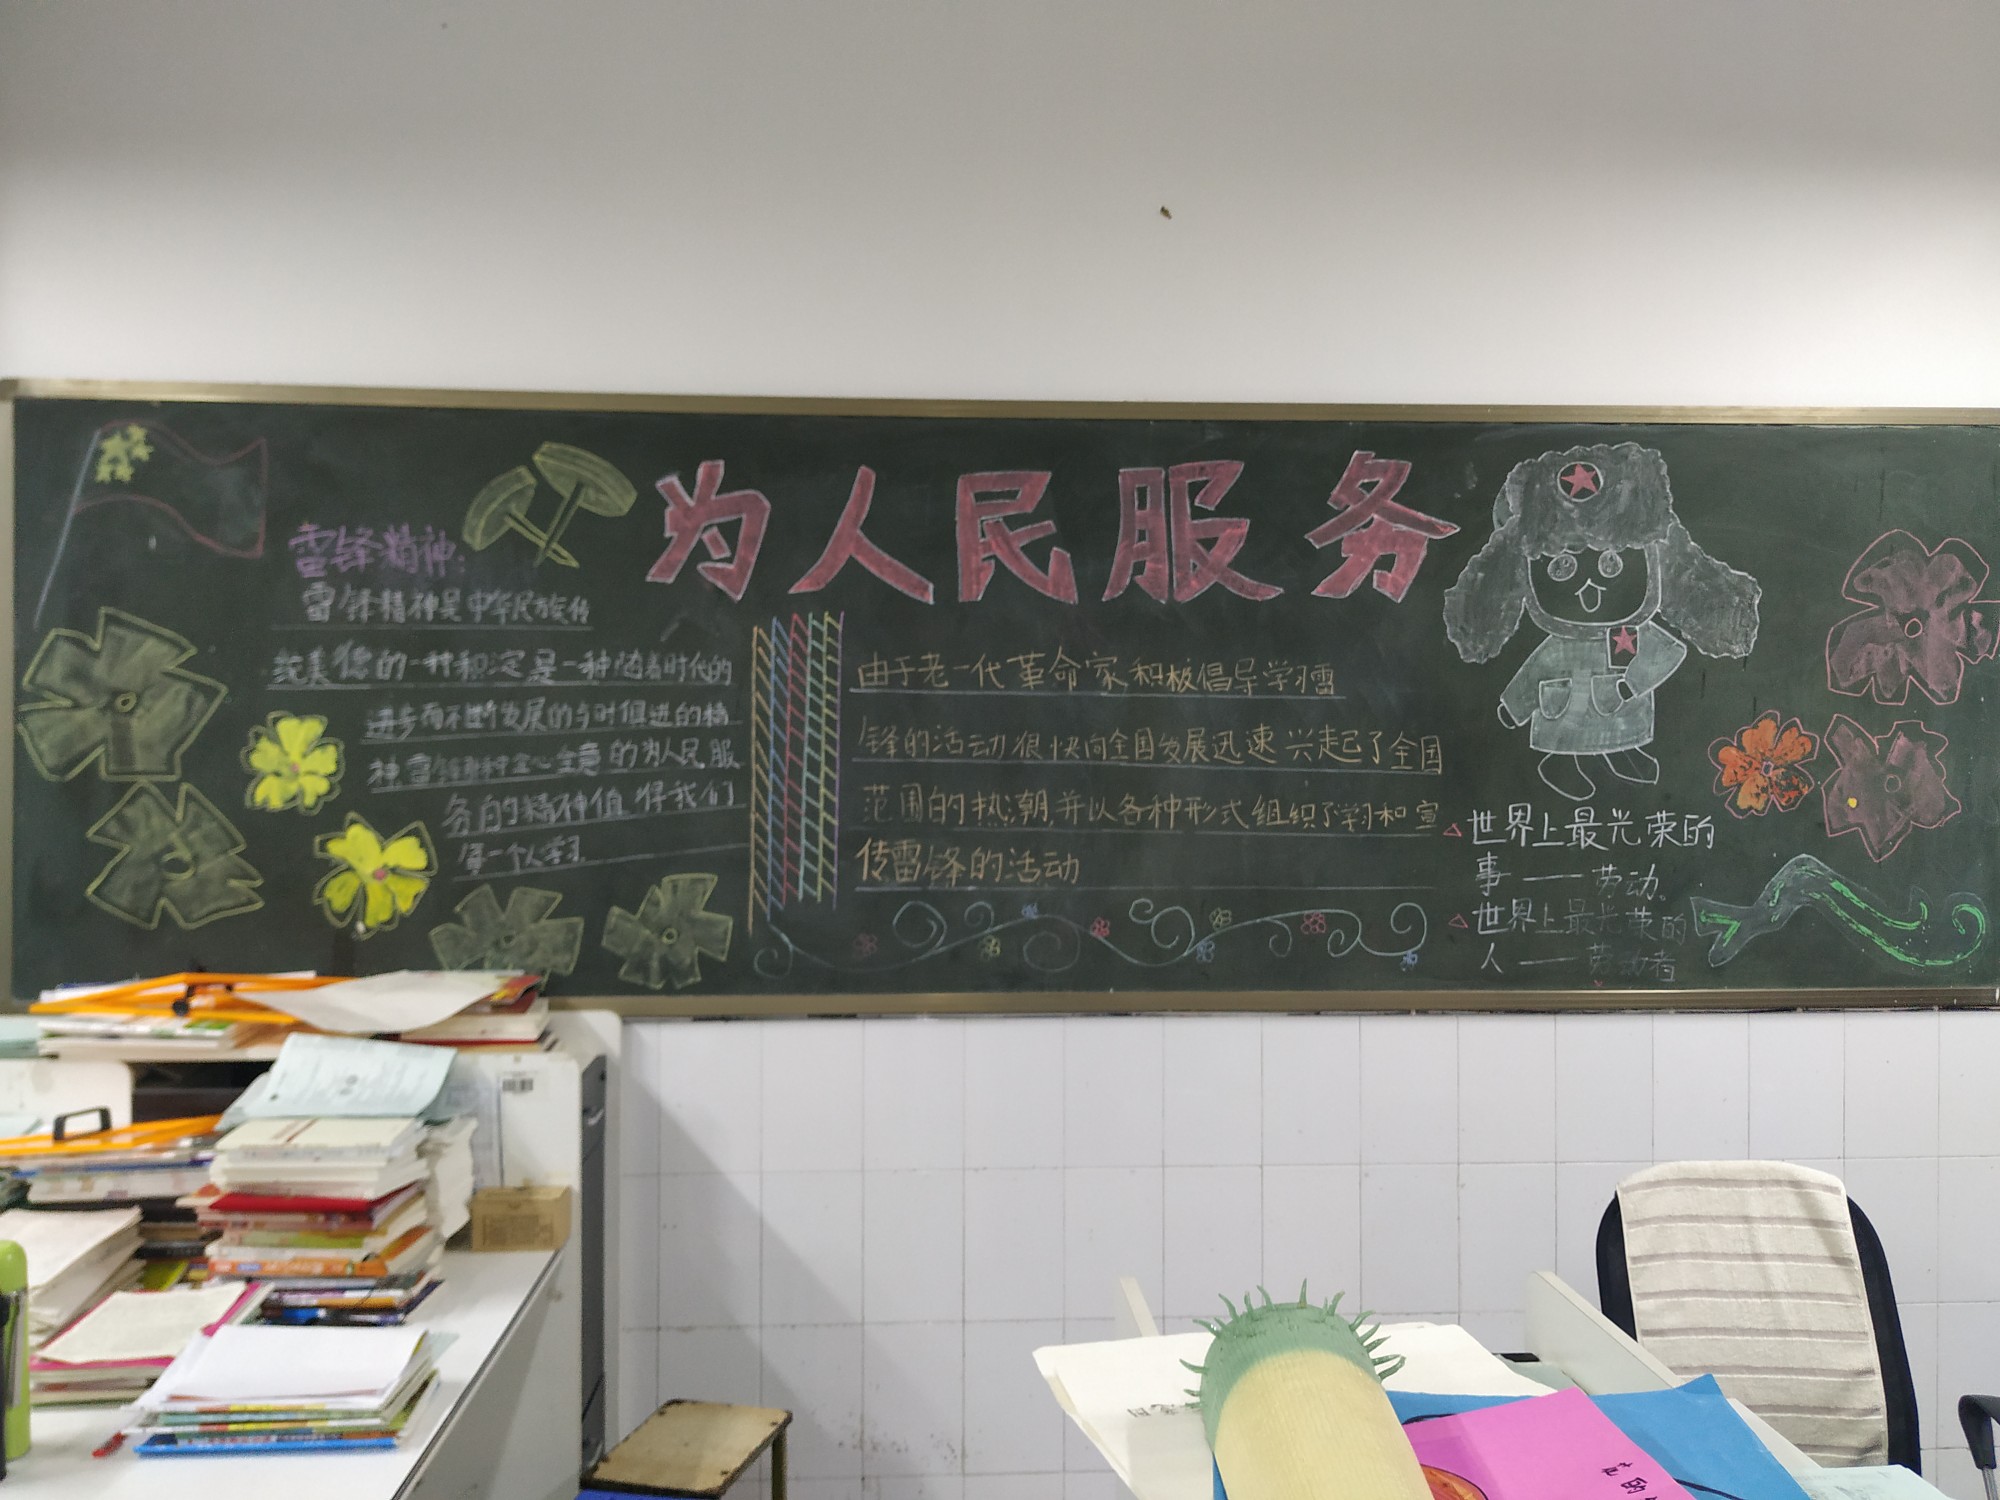 为人民服务
雷锋精神:
雷锋精神是中华民族传
统美德的一种积淀是一种随着时代的
进步而不断发展的与时俱进的精
神,雷锋那种全心全意的为人民服
务的精神值得我们
每一个人学习
由于老一代革命家积极倡导学习雷
锋的活动很快向全国发展迅速兴起了全国
范围的热潮,并以各种形式组织了学习和宣
传雷锋的活动
世界上最光荣的
事——劳动。
世界上最光荣的
人——劳动者